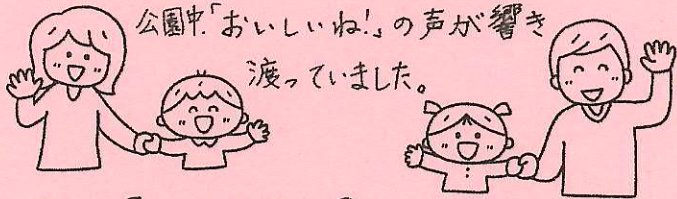 公園中「おいしいね!」の声が響き
渡っていました。